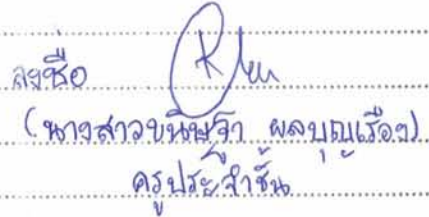 ลงชื่อ
(นางสาวขนิษฐา ผลบุญเรือง)
ครูประจำชั้น